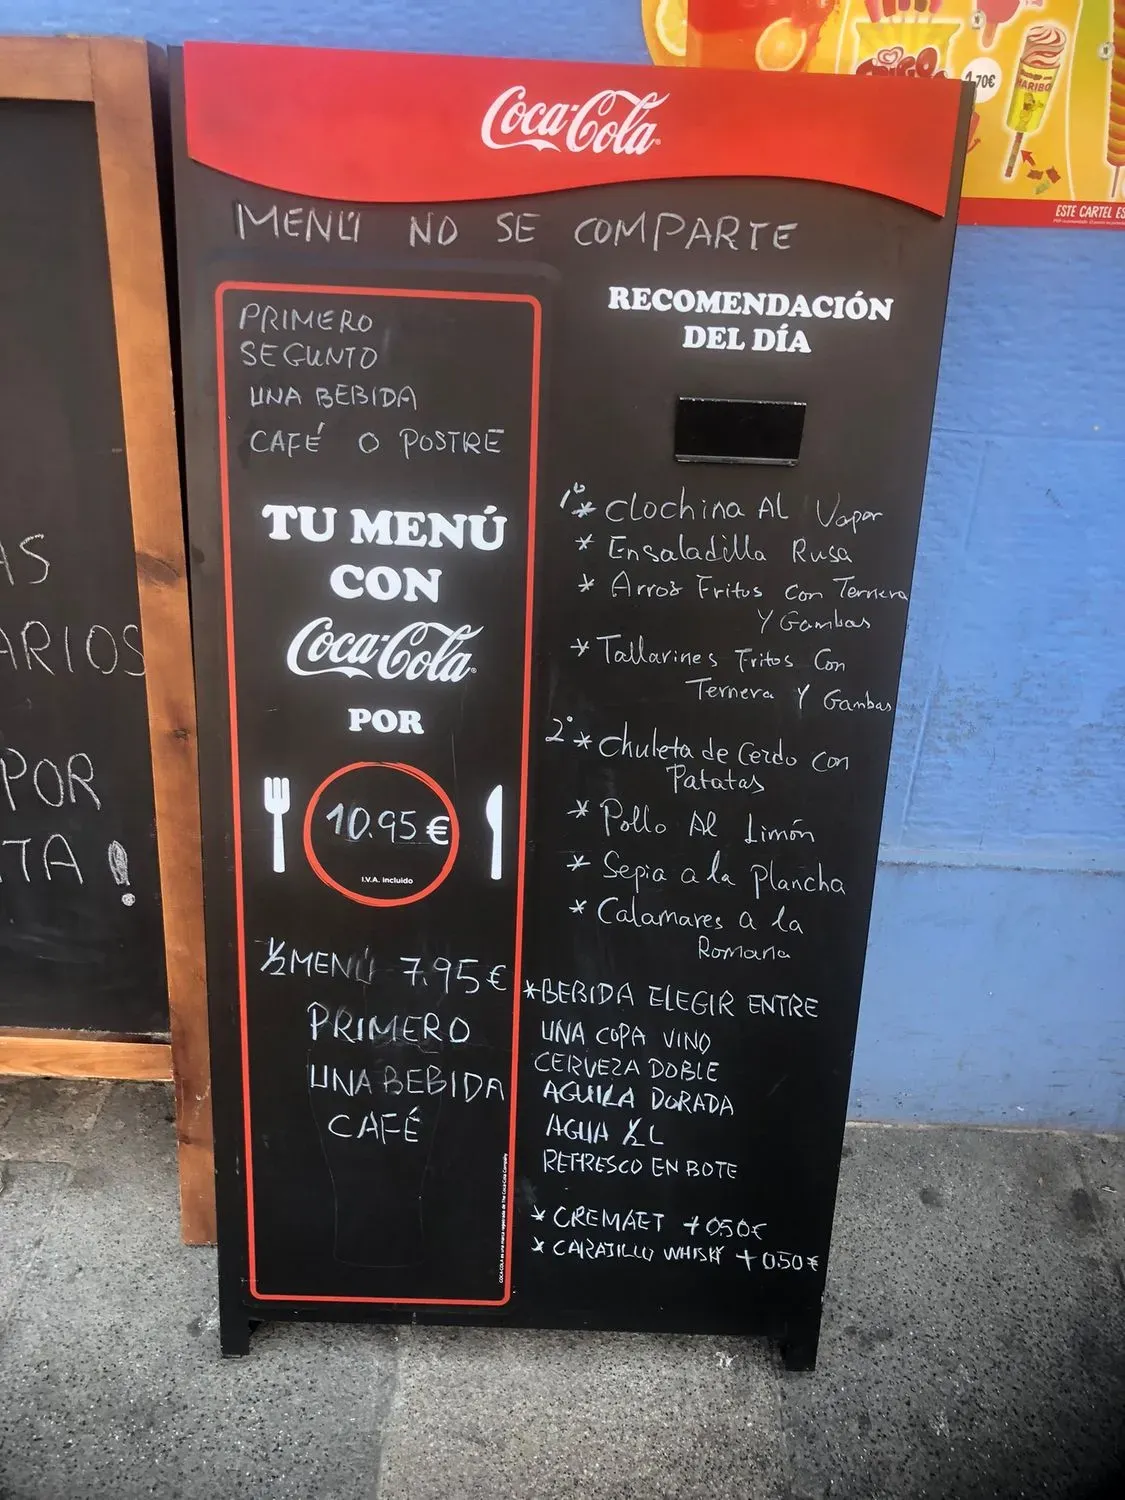 Coca-Cola
MENÚ NO SE COMPARTE
PRIMERO
SEGUNTO
UNA BEBIDA
CAFÉ O POSTRE
TU MENÚ
CON
Coca-Cola
POR
10.95 €
I.V.A. incluido
1/2 MENÚ 7.95 €
PRIMERO
UNA BEBIDA
CAFÉ
RECOMENDACIÓN
DEL DÍA
1º * Clochina Al Vapor
* Ensaladilla Rusa
* Arroz Fritos con Ternera
Y Gambas
* Tallarines Fritos Con
Ternera Y Gambas
2º * Chuleta de Cerdo con
Patatas
* Pollo Al Limón
* Sepia a la Plancha
* Calamares a la
Romana
* BEBIDA ELEGIR ENTRE
UNA COPA VINO
CERVEZA DOBLE
AGUILA DORADA
AGUA 1/2 L
REFRESCO EN BOTE
* CREMAET + 0.50€
* CARAJILLO WHISKY + 0.50€
AS
ARIOS
POR
TA !
1,70€
HARIBO
ESTE CARTEL ES